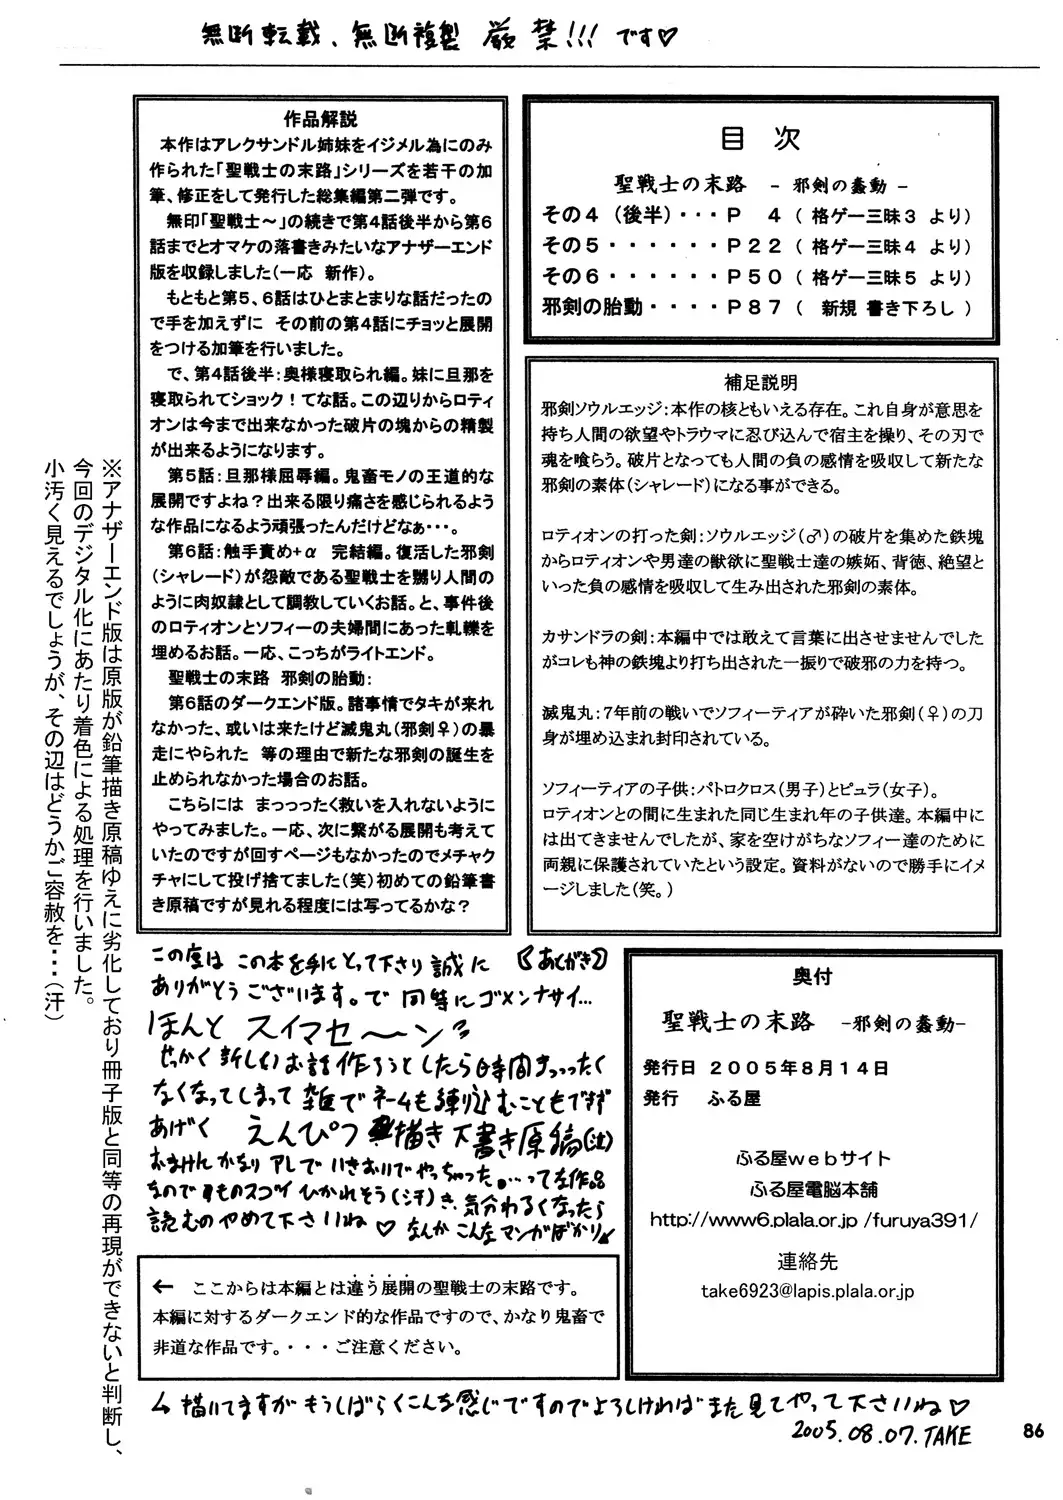 無断転載、無断複製 厳禁!!!です♡
作品解説
本作はアレクサンドル姉妹をイジメル為にのみ
作られた「聖戦士の末路」シリーズを若干の加
筆、修正をして発行した総集編第二弾です。
無印「聖戦士～」の続きで第4話後半から第6
話までとオマケの落書きみたいなアナザーエンド
版を収録しました(一応 新作)。
もともと第5、6話はひとまとまりな話だったの
で手を加えずに その前の第4話にチョッと展開
をつける加筆を行いました。
で、第4話後半:奥様寝取られ編。妹に旦那を
寝取られてショック!てな話。この辺りからロティ
オンは今まで出来なかった破片の塊からの精製
が出来るようになります。
第5話:旦那様屈辱編。鬼畜モノの王道的な
展開ですよね?出来る限り痛さを感じられるよう
な作品になるよう頑張ったんだけどなぁ・・・。
第6話:触手責め+α 完結編。復活した邪剣
(シャレード)が怨敵である聖戦士を嬲り人間の
ように肉奴隷として調教していくお話。と、事件後
のロティオンとソフィーの夫婦間にあった軋轢を
埋めるお話。一応、こっちがライトエンド。
聖戦士の末路 邪剣の胎動:
第6話のダークエンド版。諸事情でタキが来れ
なかった、或いは来たけど滅鬼丸(邪剣♀)の暴
走にやられた 等の理由で新たな邪剣の誕生を
止められなかった場合のお話。
こちらには まっっったく救いを入れないように
やってみました。一応、次に繋がる展開も考えて
いたのですが回すページもなかったのでメチャク
チャにして投げ捨てました(笑)初めての鉛筆書
き原稿ですが見れる程度には写ってるかな?
目 次
聖戦士の末路 - 邪剣の蠢動 -
その4 (後半)・・・P 4 ( 格ゲー三昧3 より)
その5・・・・・・P22 ( 格ゲー三昧4 より)
その6・・・・・・P50 ( 格ゲー三昧5 より)
邪剣の胎動・・・・P87 ( 新規 書き下ろし )
補足説明
邪剣ソウルエッジ:本作の核ともいえる存在。これ自身が意思を
持ち人間の欲望やトラウマに忍び込んで宿主を操り、その刃で
魂を喰らう。破片となっても人間の負の感情を吸収して新たな
邪剣の素体(シャレード)になる事ができる。
ロティオンの打った剣:ソウルエッジ(♂)の破片を集めた鉄塊
からロティオンや男達の獣欲に聖戦士達の嫉妬、背徳、絶望と
いった負の感情を吸収して生み出された邪剣の素体。
カサンドラの剣:本編中では敢えて言葉に出させませんでした
がコレも神の鉄塊より打ち出された一振りで破邪の力を持つ。
滅鬼丸:7年前の戦いでソフィーティアが砕いた邪剣(♀)の刀
身が埋め込まれ封印されている。
ソフィーティアの子供:パトロクロス(男子)とピュラ(女子)。
ロティオンとの間に生まれた同じ生まれ年の子供達。本編中に
は出てきませんでしたが、家を空けがちなソフィー達のために
両親に保護されていたという設定。資料がないので勝手にイメ
ージしました(笑。)
※アナザーエンド版は原版が鉛筆描き原稿ゆえに劣化しており冊子版と同等の再現ができないと判断し、
今回のデジタル化にあたり着色による処理を行いました。
小汚く見えるでしょうが、その辺はどうかご容赦を・・・(汗)
この度は この本を手にとって下さり 誠に 【あとがき】
ありがとうございます。で 同時にゴメンナサイ...
ほんと スイマセ～ン
せっかく新しいお話作ろうとしたら時間まっったく
なくなってしまって 雑でネームも練り込むこともできず
あげく えんぴつ描き下書き原稿(泣)
おまけん かなり アレで いきおいでやっちゃった……って な作品
なのでそのスゴイ ひかれそう(汗)き、気分わるくなったら
読むのやめて下さいね♡ なんか こんなマンガばかり
奥付
聖戦士の末路 -邪剣の蠢動-
発行日 2005年8月14日
発行 ふる屋
ふる屋webサイト
ふる屋電脳本舗
http://www6.plala.or.jp /furuya391/
連絡先
take6923@lapis.plala.or.jp
← ここからは本編とは違う展開の聖戦士の末路です。
本編に対するダークエンド的な作品ですので、かなり鬼畜で
非道な作品です。・・・ご注意ください。
描いてますが もうしばらくこんな感じですのでよろしければまた 見てやって下さいね♡
2005.08.07.TAKE
86